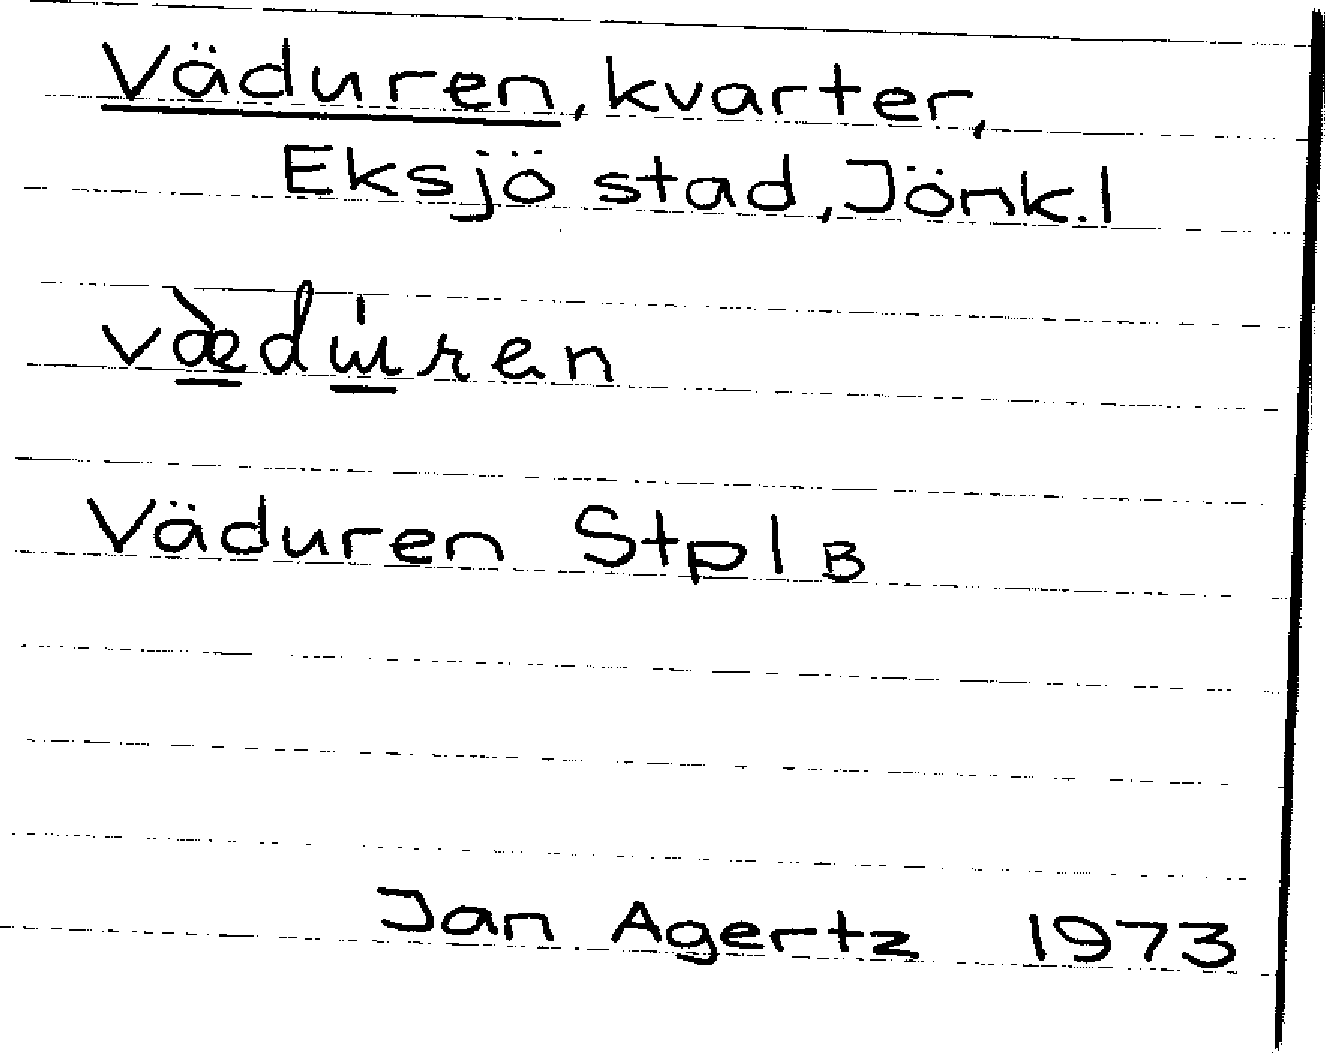 Väduren, kvarter,
Eksjö stad, Jönk. l
Väduren Stpl B
Jan Agertz 1973